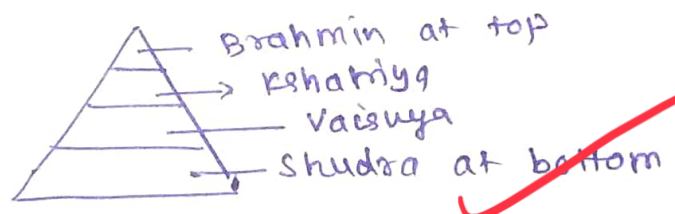 Brahmin at top
Kshatriya
Vaisuya
Shudra at bottom